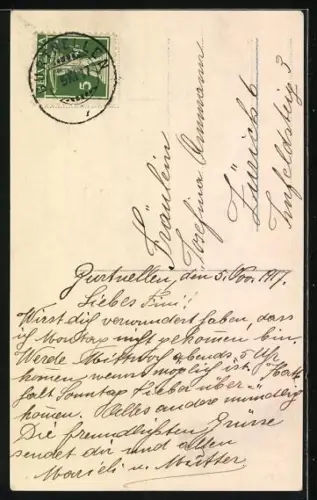 GURTNELLEN
5
Fräulein
Josefina Ammann
Zürich 6
Imfeldsteig 3
Gurtnellen, den 5. Nov. 1917.
Liebes Fini!
Wirst dich verwundert haben, dass
ich Montag nicht gekomen bin.
Werde Mittwoch abends 5 Uhr
komen, wenn möglich ist.
halt Sonntag Fieber über
komen. Alles andere mündlich
Die freundlichsten Grüsse
sendet dir und allen
Marieli u. Mutter.